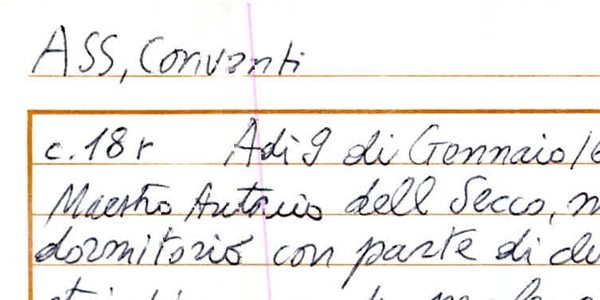 ASS, Conventi
c. 18 r Adi 9 di Gennaio
Maestro Antonio dell Secco,
dormitorio con parte di